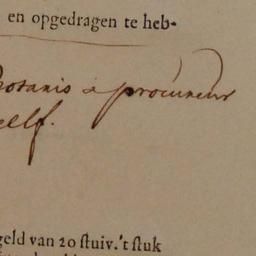 en opgedragen te heb-
Notaris & procureur
self.
geld van 20 ſtuiv. 't ſtuk